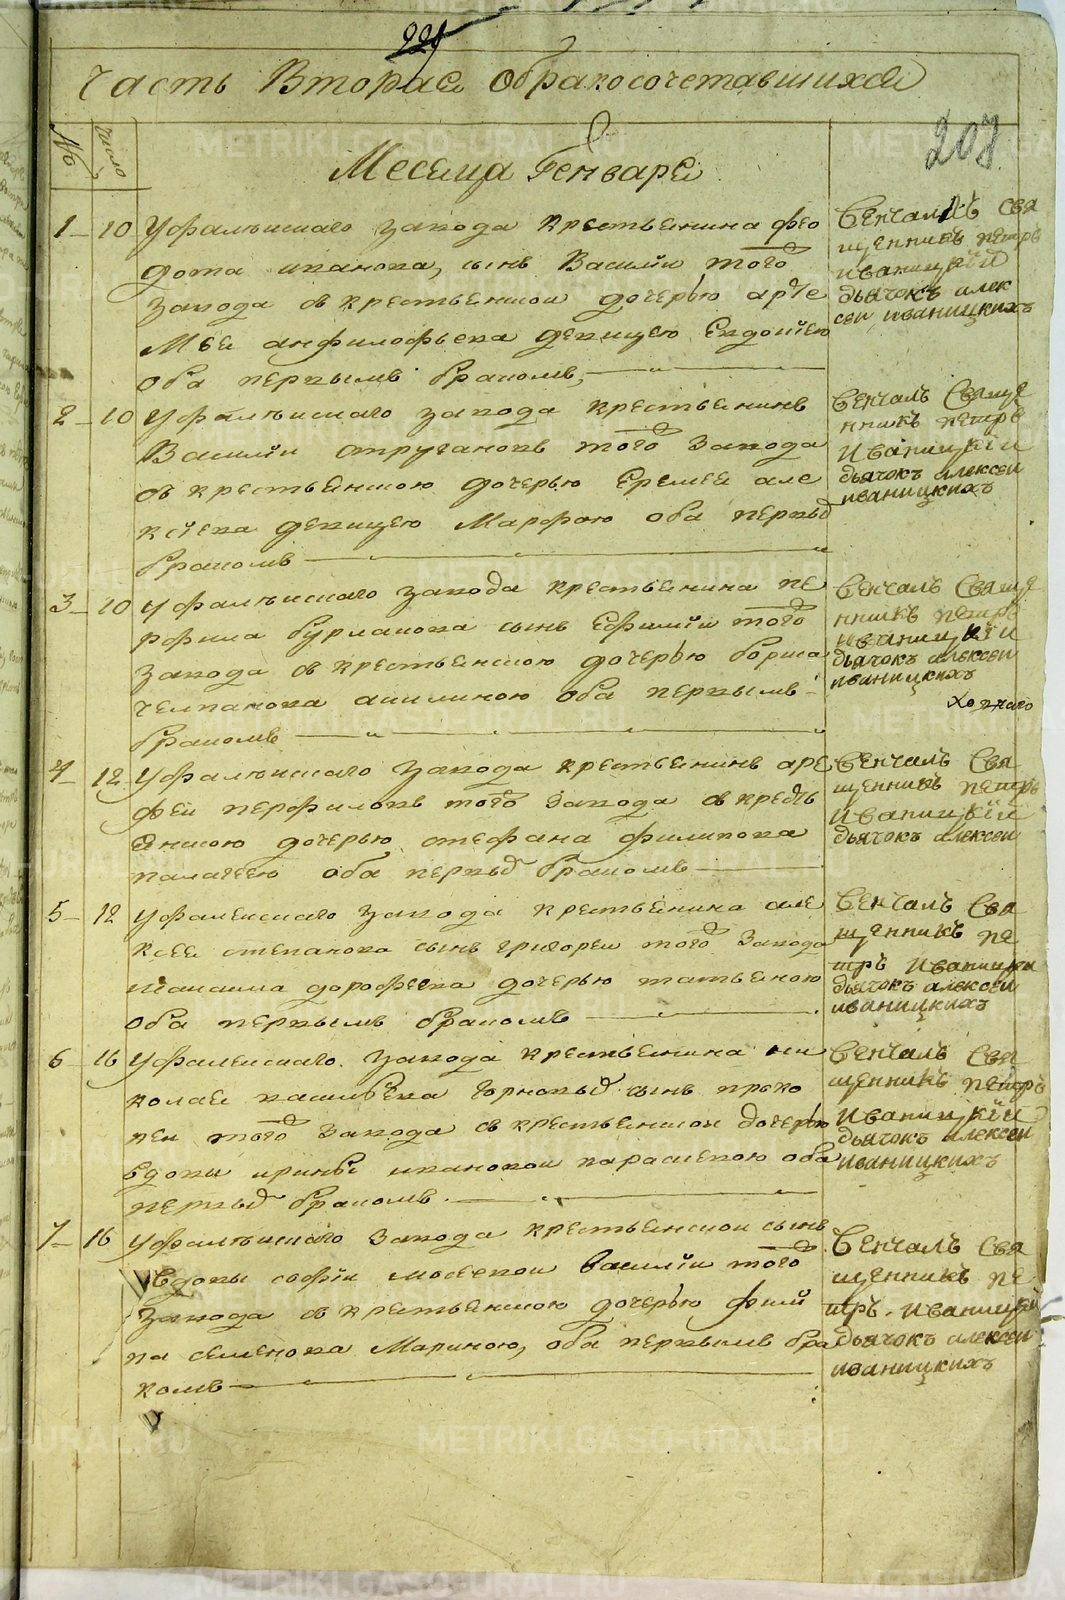 221
Часть Вторая обракосочетавшихся
207
№
Число
Месеца Генваря
1 10 Уфалѣискаго завода крестьенина фео
дота иванова, сынъ Василіи того
завода съ крестьенскои дочерью арте
мѣя анфилофьева девицею Евдокіею
оба первымъ бракомъ,
Венчалъ Свя
щенникъ петръ
иваницкіи
дьячокъ алек
сеи иваницкихъ
2 10 Уфалѣискаго завода крестьенинъ
Василіи стругановъ того завода
съ крестьенскою дочерью Еремея але
ксѣева девицею Марфою оба первы
бракомъ
Венчалъ Свяще
нникъ петръ
Иваницкіи
дьячокъ алексеи
иваницкихъ
3 10 уфалѣискаго завода крестьенина пе
рфила бурманова сынъ Ефимiи того
завода съ крестьенскою дочерью бориса
челпанова акилиною оба первымъ
бракомъ
Венчалъ Свяще
нникъ петръ
иваницкіи
дьячокъ алексеи
иваницкихъ
4 12 Уфалѣискаго завода крестьенинъ аре
феи перфиловъ того завода съ кресть
энскою дочерью стефана филипова
палагеею оба первы бракомъ
Венчалъ Свя
щенникъ петръ
Иваницкіи
дьячокъ алексеи
5 12 уфалеискаго завода крестьенина але
ксея степанова сынъ григореи того завода
максима дорофеева дочерью татьеною
оба первымъ бракомъ
Венчалъ Свя
щенникъ пе
тръ Иваницки
дьячокъ алексеи
иваницкихъ
6 16 Уфалеискаго завода крестьенина ни
колая васильева сынъ проко
пеи того завода съ крестьенскои дочерью
вдовы ирины ивановои параскевою оба
первы бракомъ
Венчалъ Свя
щенникъ петръ
Иваницкіи
дьячокъ алексеи
иваницкихъ
7 16 уфалѣискаго завода крестьенскои сынъ
вдовы софіи Василіи того
завода съ крестьенскою дочерью фили
па семенова Мариною, оба первымъ бра
комъ
Венчалъ Свя
щенникъ пе
тръ. иваницкіи
дьячокъ алексеи
иваницкихъ
METRIKI.GASO-URAL.RU